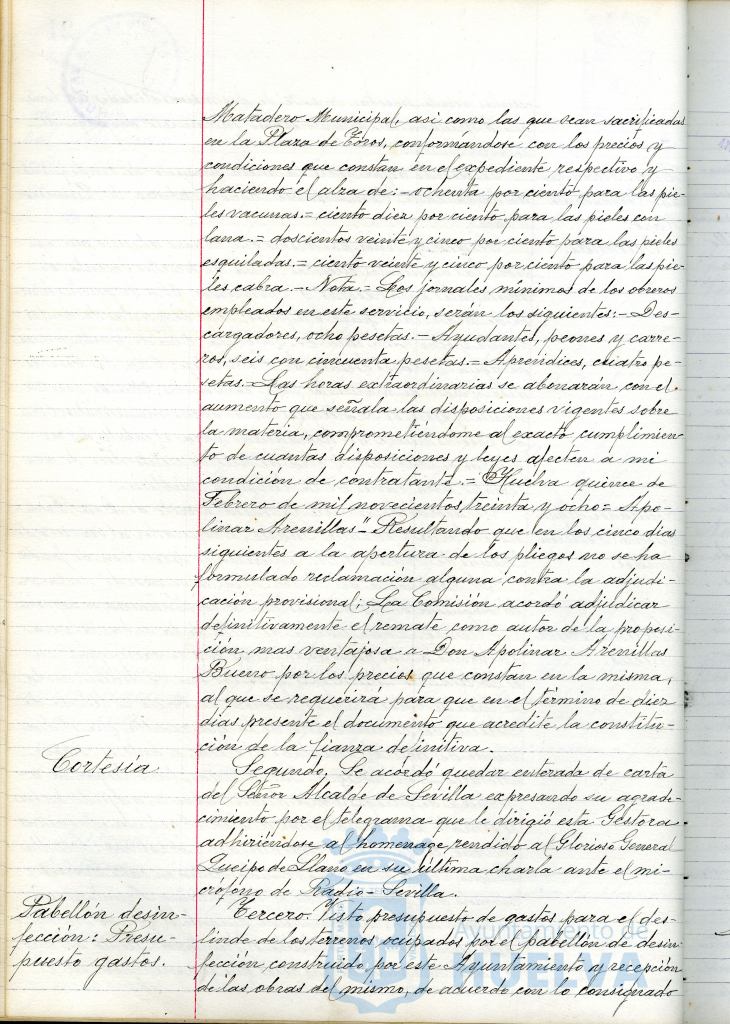 Matadero Municipal, asi como las que sean sacrificadas
en la Plaza de Toros, conformándose con los precios y
condiciones que constan en el expediente respectivo y
haciendo el alza de:- ochenta por ciento para las pie-
les vacunas.= ciento diez por ciento para las pieles con
lana.= doscientos veinte y cinco por ciento para las pieles
esquiladas.= ciento veinte y cinco por ciento para las pie-
les cabra.- Nota.= Los jornales mínimos de los obreros
empleados en este servicio, serán los siguientes:- Des-
cargadores, ocho pesetas.- Ayudantes, peones y carre-
ros, seis con cincuenta pesetas.= Aprendices, cuatro pe-
setas.= Las horas extraordinarias se abonarán con el
aumento que señala las disposiciones vigentes sobre
la materia, comprometiéndome al exacto cumplimien-
to de cuantas disposiciones y leyes afecten a mi
condición de contratante.= Huelva quince de
Febrero de mil novecientos treinta y ocho= Apo-
linar Arenillas"- Resultando que en los cinco dias
siguientes a la apertura de los pliegos no se ha
formulado reclamación alguna contra la adjudi-
cación provisional; La Comisión acordó adjudicar
definitivamente el remate como autor de la proposi-
ción mas ventajosa a Don Apolinar Arenillas
Bueno por los precios que constan en la misma,
al que se requerirá para que en el término de diez
dias presente el documento que acredite la constitu-
ción de la fianza definitiva.
Cortesía
Segundo. Se acordó quedar enterada de carta
del Señor Alcalde de Sevilla expresando su agrade-
cimiento por el telegrama que le dirigió esta Gestora
adhiriéndose al homenage rendido al Glorioso General
Queipo de Llano en su última charla ante el mi-
crófono de Radio-Sevilla.
Pabellón desin-
fección: Presu-
puesto gastos.
Tercero. Visto presupuesto de gastos para el des-
linde de los terrenos ocupados por el pabellón de desin-
fección, construido por este Ayuntamiento y recepción
de las obras del mismo, de acuerdo con lo consignado
Ayuntamiento de
HUELVA